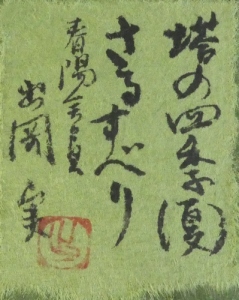 塔の四季 夏
さるすべり
春陽会会員
出岡 実